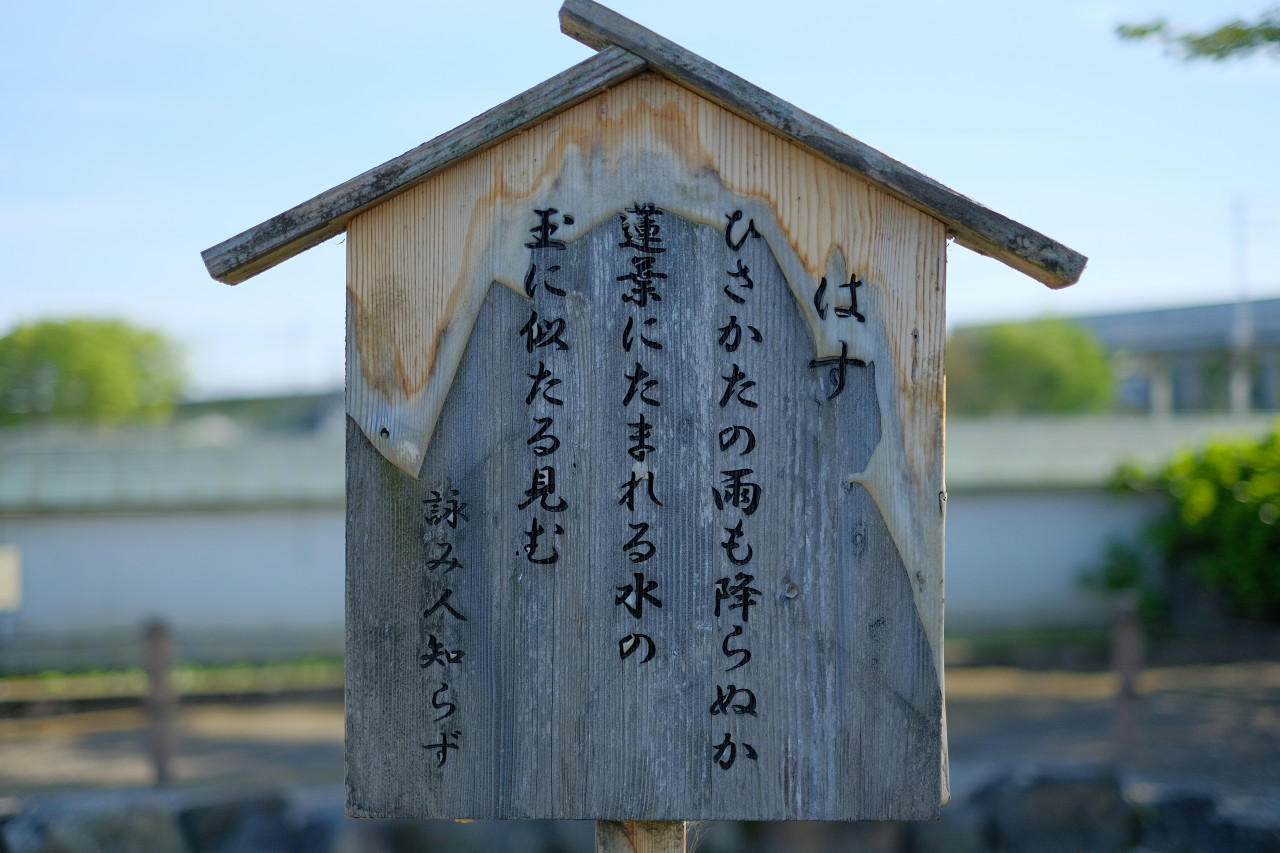 はす
ひさかたの雨も降らぬか
蓮葉にたまれる水の
玉に似たる見む
詠み人知らず